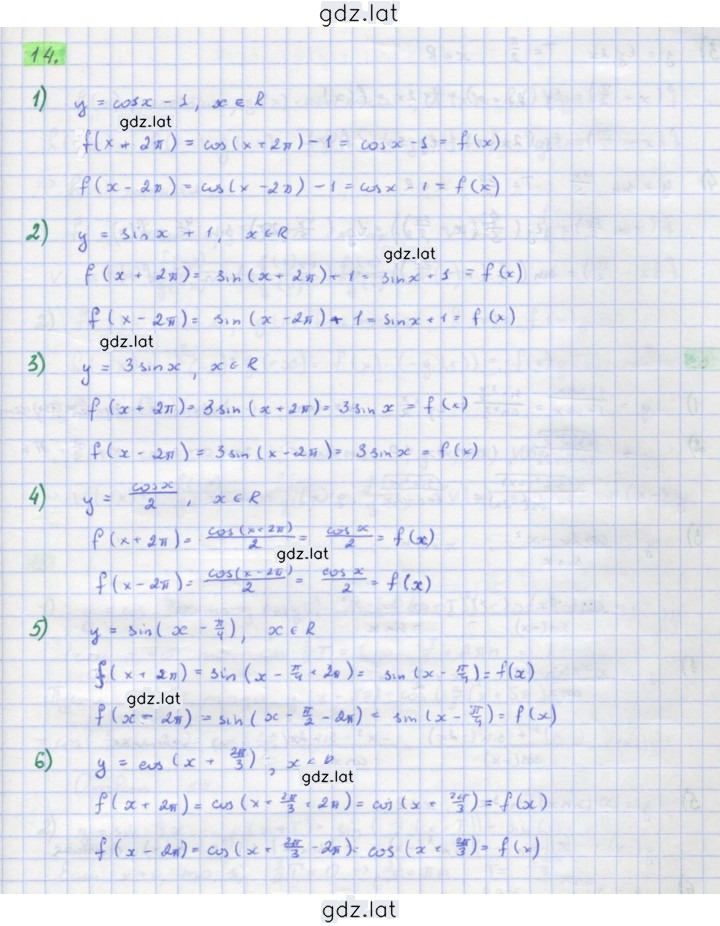 gdz.lat
14.
1) y = cosx - 1, x ∈ R
gdz.lat
f(x + 2π) = cos(x + 2π) - 1 = cosx - 1 = f(x)
f(x - 2π) = cos(x - 2π) - 1 = cosx - 1 = f(x)
2) y = sinx + 1, x ∈ R
gdz.lat
f(x + 2π) = sin(x + 2π) + 1 = sinx + 1 = f(x)
f(x - 2π) = sin(x - 2π) + 1 = sinx + 1 = f(x)
gdz.lat
3) y = 3sinx, x ∈ R
f(x + 2π) = 3sin(x + 2π) = 3sinx = f(x)
f(x - 2π) = 3sin(x - 2π) = 3sinx = f(x)
4) y = cosx/2, x ∈ R
f(x + 2π) = cos(x + 2π)/2 = cosx/2 = f(x)
gdz.lat
f(x - 2π) = cos(x - 2π)/2 = cosx/2 = f(x)
5) y = sin(x - π/4), x ∈ R
f(x + 2π) = sin(x - π/4 + 2π) = sin(x - π/4) = f(x)
gdz.lat
f(x - 2π) = sin(x - π/2 - 2π) = sin(x - π/4) = f(x)
6) y = cos(x + 2π/3), x ∈ R
gdz.lat
f(x + 2π) = cos(x + 2π/3 + 2π) = cos(x + 2π/3) = f(x)
f(x - 2π) = cos(x + 2π/3 - 2π) = cos(x + 2π/3) = f(x)
gdz.lat